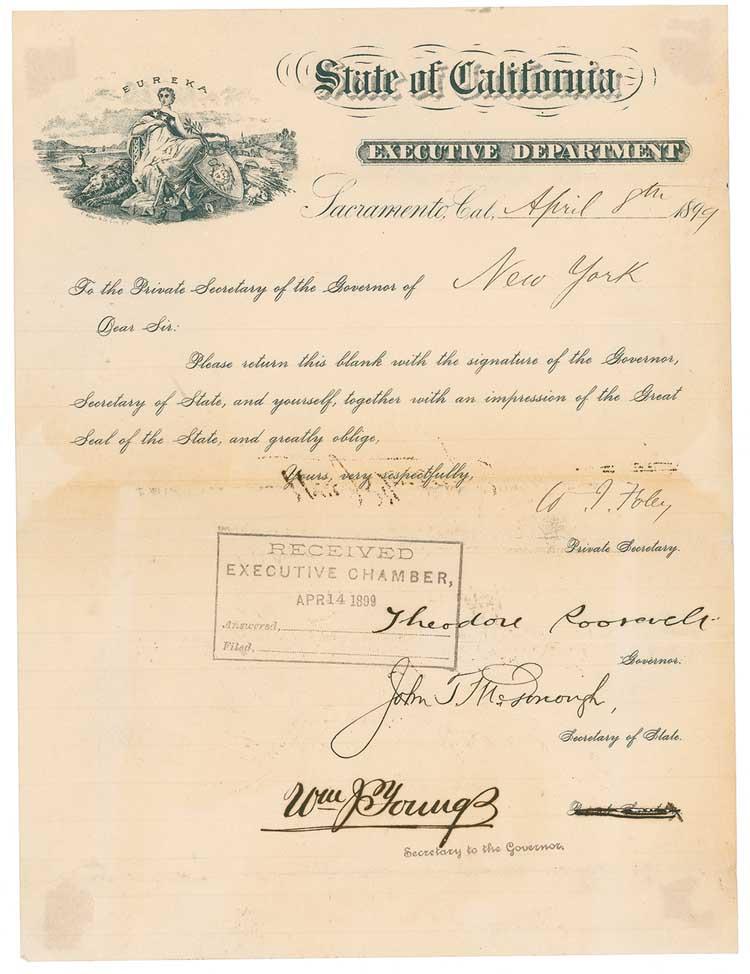 EUREKA
State of California
EXECUTIVE DEPARTMENT
Sacramento, Cal., April 8th 1899
To the Private Secretary of the Governor of New York
Dear Sir:
Please return this blank with the signature of the Governor,
Secretary of State, and yourself, together with an impression of the Great
Seal of the State, and greatly oblige,
Yours, very respectfully,
W. I. Foley
Private Secretary.
RECEIVED
EXECUTIVE CHAMBER,
APR 14 1899
Answered,
Filed,
Theodore Roosevelt
Governor.
John T. McDonough,
Secretary of State.
Wm J Young
Private Secretary
Secretary to the Governor.